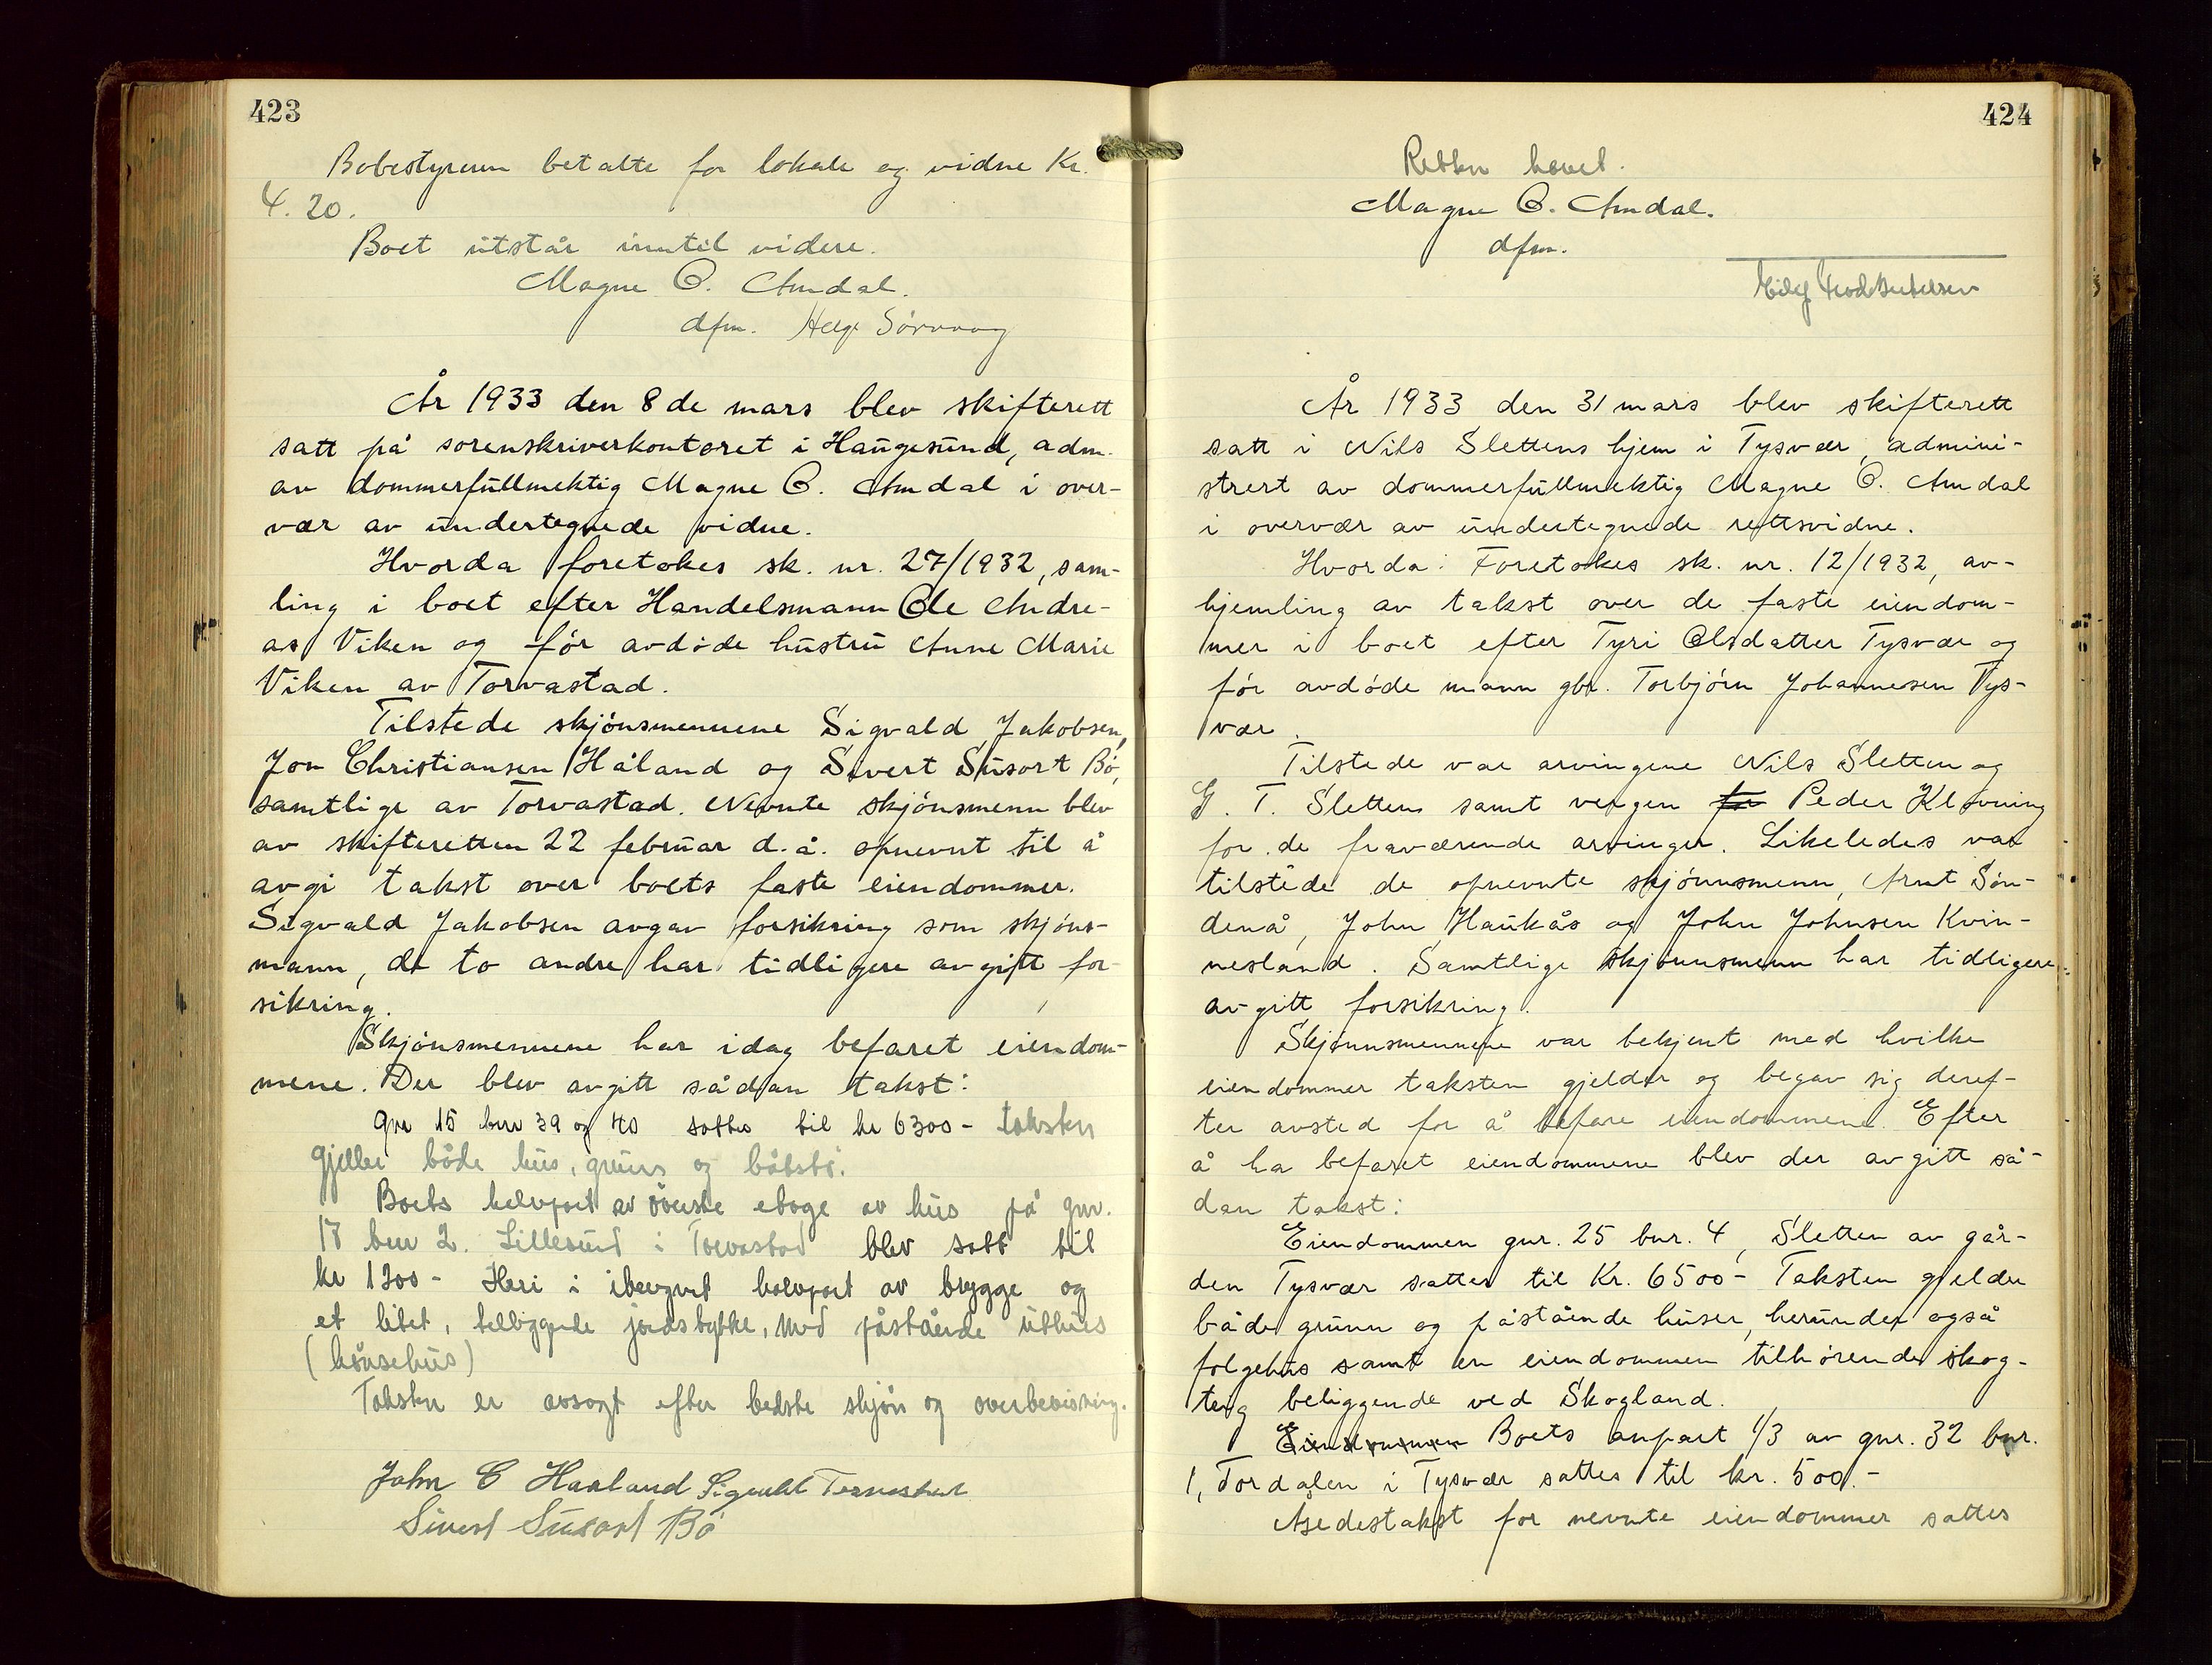 423
Bobestyreren betalte for lokale og vidne Kr.
4.20.
Boet utstår inntil videre.
Magne O. Amdal.
dfm. Helge
År 1933 den 8de mars blev skifterett
satt på sorenskriverkontoret i Haugesund, adm.
av dommerfullmektig Magne O. Amdal i over-
vær av undertegnede vidne.
Hvorda foretokes sk. nr. 27/1932, sam-
ling i boet efter Handelsmann Ole Andre-
as Viken og før avdøde hustru Anne Marie
Viken av Torvastad.
Tilstede skjønsmennene Sigvald Jakobsen,
Jon Christiansen Håland og Sivert Susort Bø,
samtlige av Torvastad. Nevnte skjønsmenn blev
av skifteretten 22 februar d.å. opnevnt til å
avgi takst over boets faste eiendommer.
Sigvald Jakobsen avgav forsikring som skjøns-
mann, de to andre har tidligere avgitt for-
sikring.
Skjønsmennene har idag befaret eiendom-
mene. Der blev avgitt sådan takst:
gnr 15 bnr 39 og 40 sattes til kr 6300- taksten
gjelder både hus, grunn og båtstø.
Boets halvpart av øverste etage av hus på gnr.
17 bnr 2. Lillesund i Torvastad blev satt til
kr 1200- Heri i iberegnet halvpart av brygge og
et litet, tilliggende jordstykke, med påstående uthus
(hønsehus)
Taksten er avsagt efter bedste skjøn og overbevisning.
John C Haaland Sigvald
Sivert Susort Bø
424
Retten hevet.
Magne O. Amdal.
dfm.
År 1933 den 31 mars blev skifterett
satt i Nils Slettens hjem i Tysvær, admini-
strert av dommerfullmektig Magne O. Amdal
i overvær av undertegnede rettsvidne.
Hvorda: Foretokes sk. nr. 12/1932, av-
hjemling av takst over de faste eiendom-
mer i boet efter Tyri Olsdatter Tysvær og
før avdøde mann gbr. Torbjørn Johannesen Tys-
vær.
Tilstede var arvingene Nils Sletten og
G. T. Sletten samt vergen for Peder Kløvning
for de fraværende arvinger. Likeledes var
tilstede de opnevnte skjønnsmenn, Arnt Søn-
denå, John Haukås og John Johnsen Kvin-
nesland. Samtlige skjønnsmenn har tidligere
avgitt forsikring.
Skjønnsmennene var bekjent med hvilke
eiendommer taksten gjelder og begav sig deref-
ter avsted for å befare eiendommene. Efter
å ha befaret eiendommene blev der avgitt så-
dan takst:
Eiendommen gnr. 25 bnr. 4, Sletten av går-
den Tysvær sattes til Kr. 6500- Taksten gjelder
både grunn og påstående huser, herunder også
følgehus samt en eiendommen tilhørende skog-
teig beliggende ved Skogland.
Eiendommen Boets anpart 1/3 av gnr. 32 bnr.
1, Tordalen i Tysvær sattes til kr. 500.-
Åsedestakst for nevnte eiendommer sattes